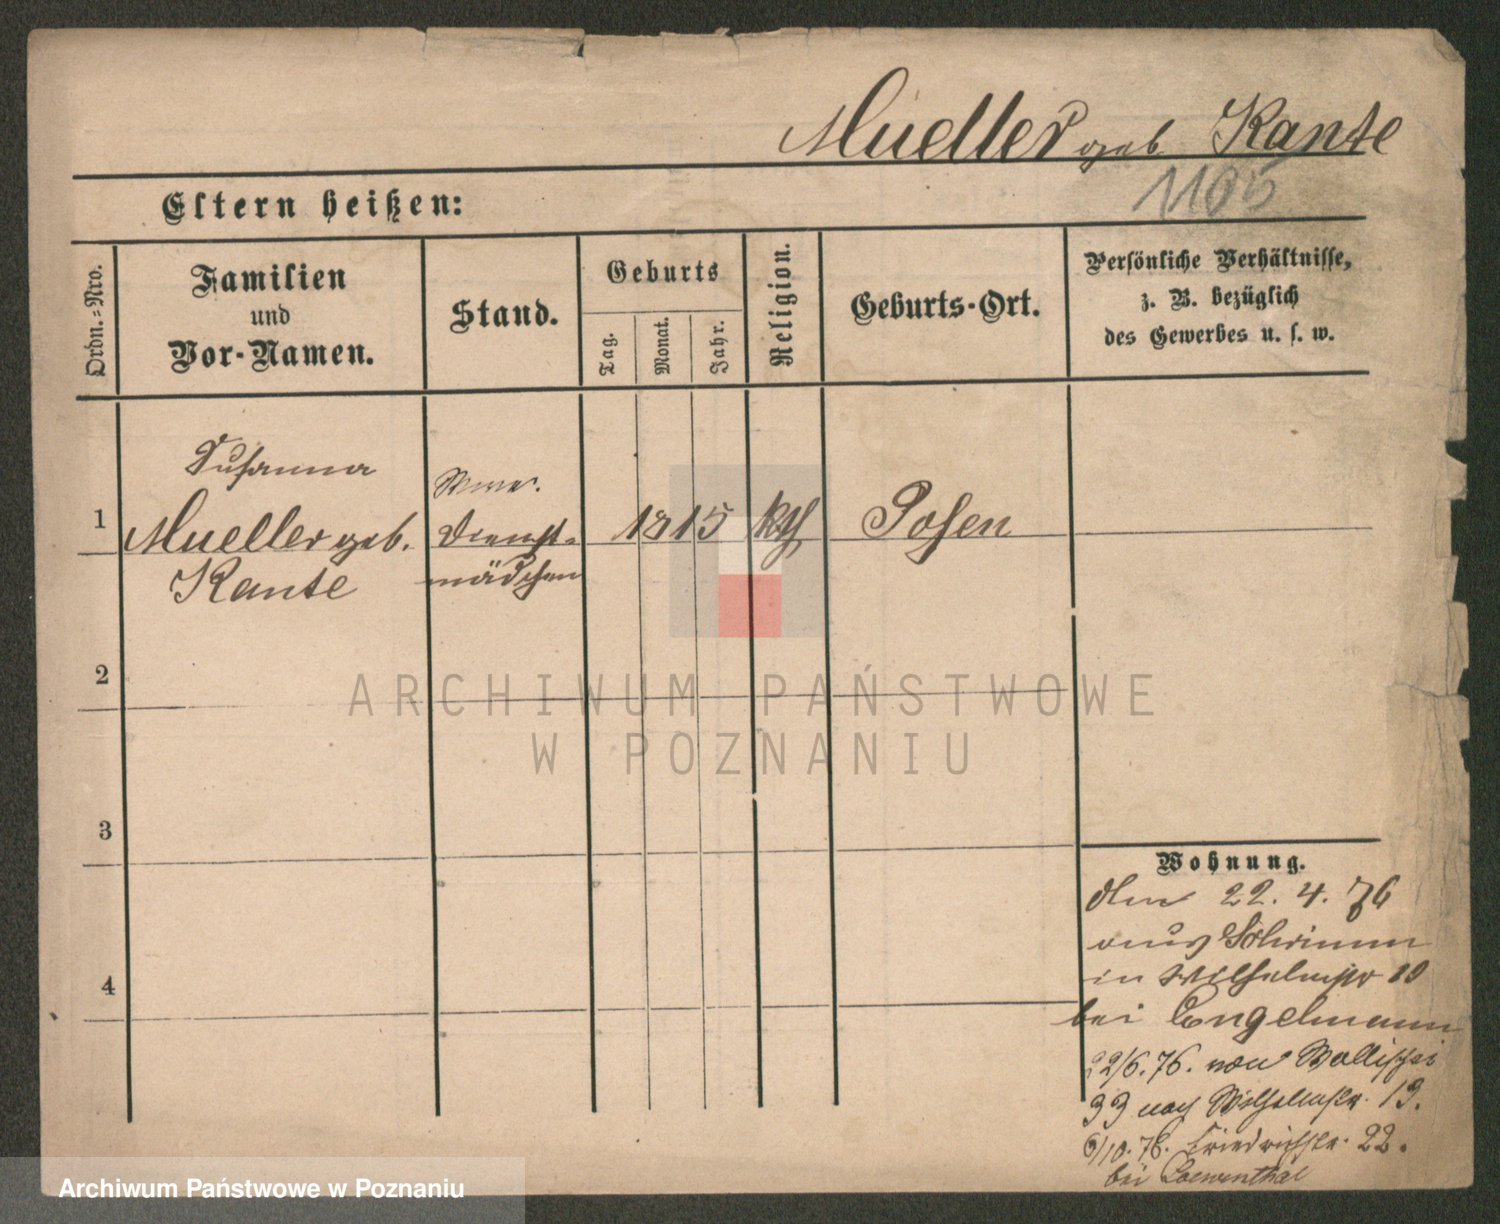 Mueller geb Kante
1105
Eltern heißen:
Ordn.-Nro.
Familien
und
Vor-Namen.
Stand.
Geburts
Tag.
Monat.
Jahr.
Religion.
Geburts-Ort.
Persönliche Verhältnisse,
z. B. bezüglich
des Gewerbes u. s. w.
Susanna
1
Mueller geb.
Kante
Wwe.
Dienst-
mädchen
1815
kth
Posen
2
3
4
ARCHIWUM PAŃSTWOWE
W POZNANIU
Wohnung.
Den 22. 4. 76
aus Schrimm
in Wilhelmstr
bei Engelmann
22/6. 76. von Wallischei
33 nach Wilhelmstr. 13.
6/10. 76. Friedrichstr. 22.
bei Loewenthal
Archiwum Państwowe w Poznaniu